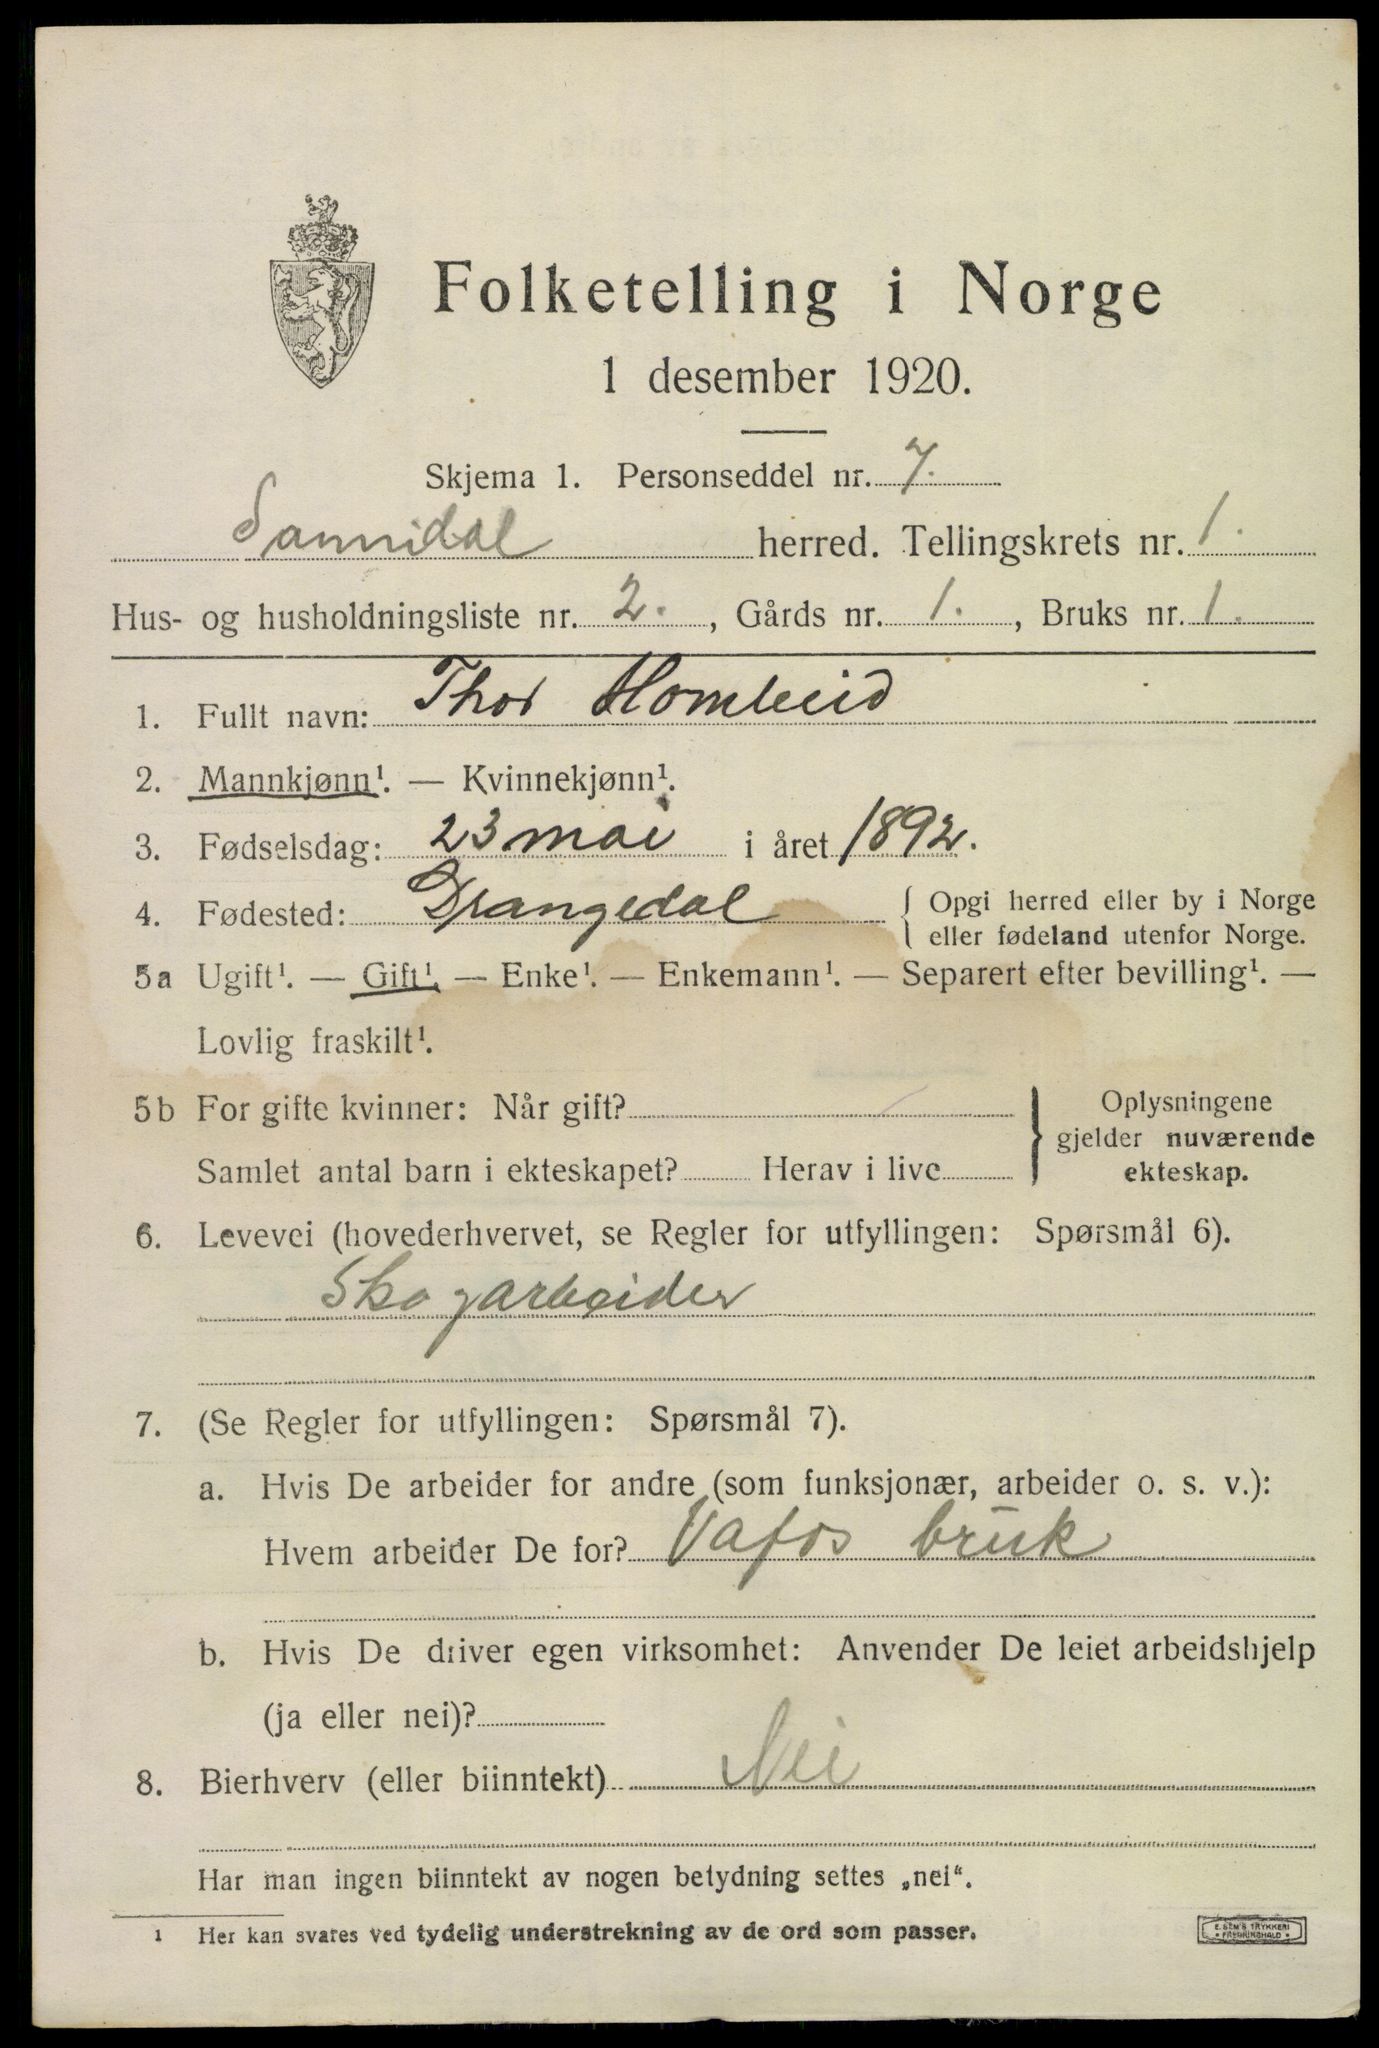 Folketelling i Norge
1 desember 1920.
Skjema 1. Personseddel nr. 7.
Sannidal herred. Tellingskrets nr. 1.
Hus- og husholdningsliste nr. 2. , Gårds nr. 1. , Bruks nr. 1.
1. Fullt navn: Thor Homleid
2. Mannkjønn¹. — Kvinnekjønn¹.
3. Fødselsdag: 23 mai i året 1892.
4. Fødested: Drangedal { Opgi herred eller by i Norge
eller fødeland utenfor Norge.
5a Ugift¹. — Gift¹. — Enke¹. — Enkemann¹. — Separert efter bevilling¹. —
Lovlig fraskilt¹.
5b For gifte kvinner: Når gift? } Oplysningene
gjelder nuværende
Samlet antal barn i ekteskapet? Herav i live ekteskap.
6. Levevei (hovederhvervet, se Regler for utfyllingen: Spørsmål 6).
Skogarbeider
7. (Se Regler for utfyllingen: Spørsmål 7).
a. Hvis De arbeider for andre (som funksjonær, arbeider o. s. v.):
Hvem arbeider De for? Vafos bruk
b. Hvis De driver egen virksomhet: Anvender De leiet arbeidshjelp
(ja eller nei)?
8. Bierhverv (eller biinntekt) Nei
Har man ingen biinntekt av nogen betydning settes „nei“.
¹ Her kan svares ved tydelig understrekning av de ord som passer.
E. SEM'S TRYKKERI
• FREDRIKSHALD •